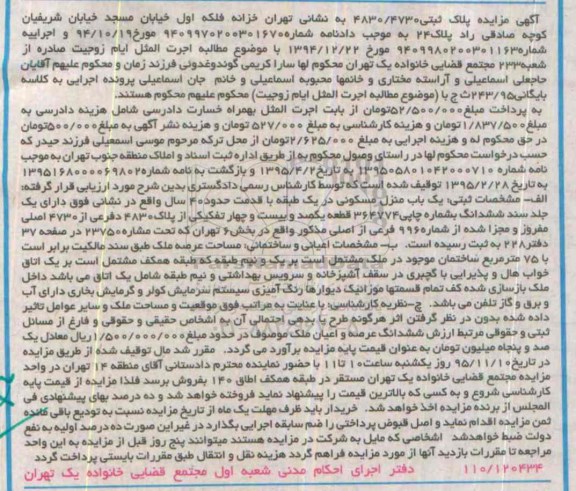 آگهی مزایده پلاک ثبتی۴۸۳۰/۴۷۳۰ به نشانی تهران خزانه فلکه اول خیابان مسجد خیابان شریفیان
کوچه صادقی راد پلاک۲۴ به موجب دادنامه شماره۹۴۰۹۹۷۰۲۰۰۳۰۱۶۷۰ مورخ۹۴/۱۰/۱۹ و اجراییه
شماره۹۴۰۹۹۸۰۲۰۰۳۰۱۱۶۳ مورخ ۱۳۹۴/۱۲/۲۲ با موضوع مطالبه اجرت المثل ایام زوجیت صادره از
شعبه۲۳۳ مجتمع قضایی خانواده یک تهران محکوم لها سارا کریمی گوندوغدونی فرزند زمان و محکوم علیهم آقایان
حاجعلی اسماعیلی و آراسته مختاری و خانمها محبوبه اسماعیلی و خانم جان اسماعیلی پرونده اجرایی به کلاسه
بایگانی۲۴۳/۹۵ث ج با (موضوع مطالبه اجرت المثل ایام زوجیت) محکوم علیهم محکوم هستند.
به پرداخت مبلغ۵۲/۵۰۰/۰۰۰تومان از بابت اجرت المثل بهمراه خسارت دادرسی شامل هزینه دادرسی به
مبلغ۱/۸۳۷/۵۰۰تومان و هزینه کارشناسی به مبلغ ۵۲۷/۰۰۰ تومان و هزینه نشر آگهی به مبلغ۵۰۰/۰۰۰تومان
در حق محکوم له و هزینه اجرایی به مبلغ ۲/۶۲۵/۰۰۰تومان از محل ترکه مرحوم موسی اسمعیلی فرزند حیدر که
حسب درخواست محکوم لها در راستای وصول محکوم به از طریق اداره ثبت اسناد و املاک منطقه جنوب تهران به موجب
نامه شماره ۱۳۹۵۰۵۸۰۱۰۴۲۰۰۰۷۱۰ تاریخ۱۳۹۵/۴/۲ و بازگشت به نامه شماره۱۳۹۵۱۶۸۰۰۰۰۶۹۸۰۲
به تاریخ ۱۳۹۵/۲/۲۸ توقیف شده است که توسط کارشناس رسمی دادگستری بدین شرح مورد ارزیابی قرار گرفته:
الف– مشخصات ثبتی: یک باب منزل مسکونی در یک طبقه با قدمت حدود۴۰ سال واقع در نشانی فوق دارای یک
جلد سند ششدانگ بشماره چاپی۳۶۴۷۷۴ قطعه یکصد و بیست و چهار تفکیکی از پلاک۴۸۳۰ دفرعی از ۴۷۳۰ اصلی
مفروز و مجزا شده از شماره۹۹۶ فرعی از اصلی مذکور واقع در بخش۶ تهران که تحت مشاره۲۳۷۵۰ در صفحه ۳۷
دفتر۲۲۸ به ثبت رسیده است. ب– مشخصات اعیانی و ساختمانی: مساحت عرصه ملک طبق سند مالکیت برابر است
با ۷۵ مترمربع ساختمان موجود در ملک مشتمل است بر یک و نیم طبقه که طبقه همکف مشتمل است بر یک اتاق
خواب هال و پذیرایی با گچبری در سقف آشپزخانه و سرویس بهداشتی و نیم طبقه شامل یک اتاق می باشد داخل
ملک بازسازی شده کف تمام قسمتها موزائیک دیوارها رنگ آمیزی سیستم سرمایش کولر و گرمایش بخاری دارای آب
و برق و گاز تلفن می باشد. ج–نظریه کارشناسی: با عنایت به مراتب فوق موقعیت و مساحت ملک و سایر عوامل تاثیر
داده شده بدون در نظر گرفتن اثر هرگونه طرح یا بدهی احتمالی آن به اشخاص حقیقی و حقوقی و فارغ از مسائل
ثبتی و حقوقی مرتبط ارزش ششدانگ عرصه و اعیان ملک موصوف در حدود مبلغ۱/۵۰۰/۰۰۰/۰۰۰ریال معادل یک
صد و پنجاه میلیون تومان به عنوان قیمت پایه مزایده برآورد می گردد. مقرر شد مال توقیف شده از طریق مزایده
در تاریخ۹۵/۱۱/۱۰ روز یکشنبه ساعت۱۰ تا۱۱ با حضور نماینده محترم دادستانی آقای منطقه ۱۴ تهران در واحد
مزایده مجتمع قضایی خانواده یک تهران مستقر در طبقه همکف اطاق ۱۴۰ بفروش برسد فلذا مزایده از قیمت پایه
کارشناسی شروع و به کسی که بالاترین قیمت را پیشنهاد نماید فروخته خواهد شد و ده درصد بهای پیشنهادی فی
المجلس از برنده مزایده اخذ خواهد شد. خریدار باید ظرف مهلت یک ماه از تاریخ مزایده نسبت به تودیع باقی مانده
ثمن مزایده اقدام نماید و اصل فیوض پرداختی را ضم سابقه اجرایی بگذارد در غیر این صورت ده درصد اولیه به نفع
دولت ضبط خواهدشد اشخاصی که مایل به شرکت در مزایده هستند میتوانند پنج روز قبل از مزایده به این واحد
مراجعه تا مقررات بازدید آنها از مورد مزایده فراهم گردد هزینه نقل و انتقال طبق مقررات بایستی پرداخت گردد
۱۱۰/۱۲۰۴۳۴ دفتر اجرای احکام مدنی شعبه اول مجتمع قضایی خانواده یک تهران